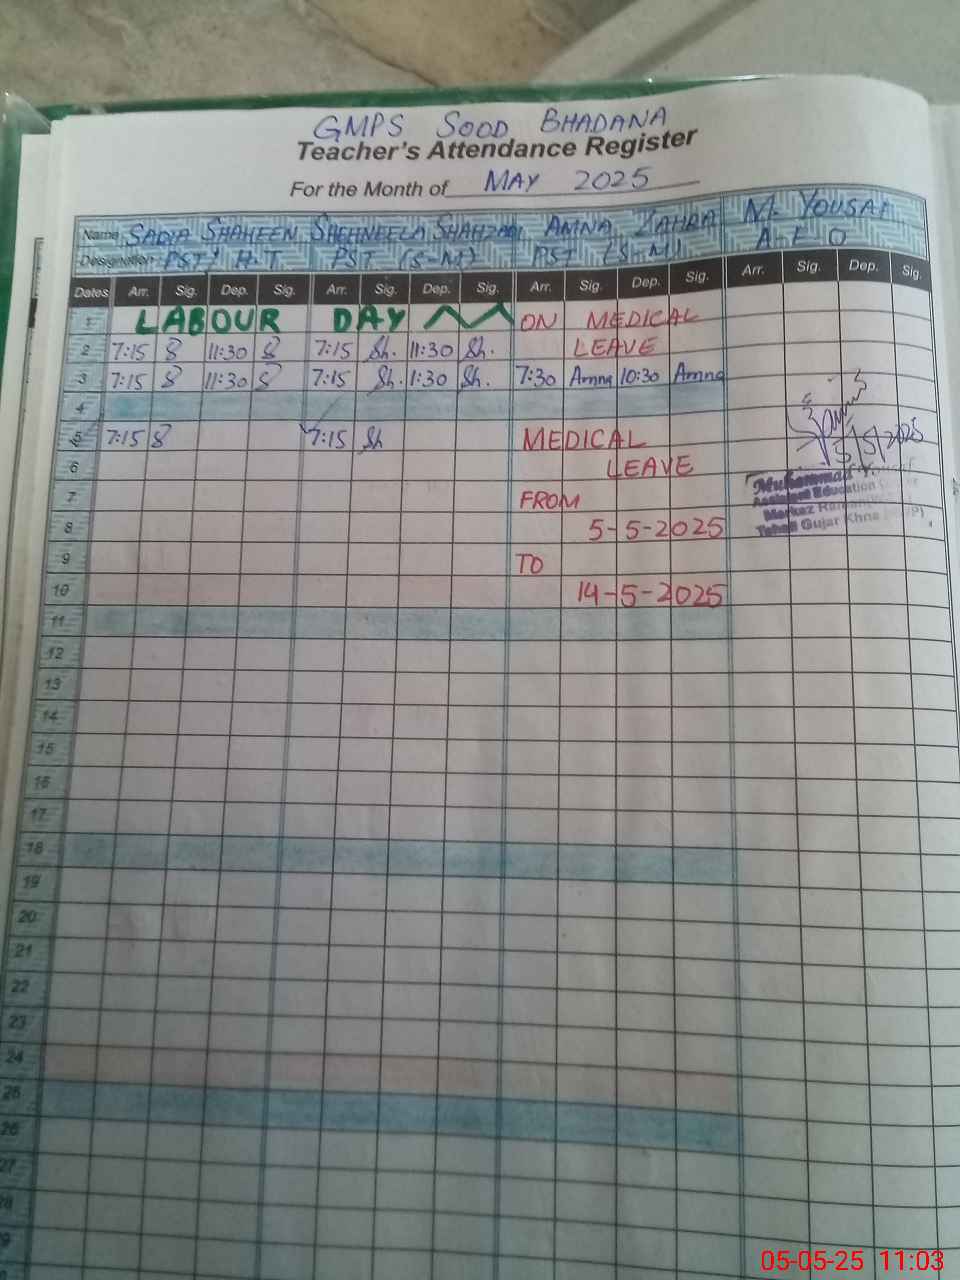 GMPS SOOD BHADANA
Teacher's Attendance Register
For the Month of MAY 2025
Name SADIA SHAHEEN SHEHNEELA SHAHZADI AMNA ZAHRA M. YOUSAF
Designation PST/ H.T PST (S-M) PST (S-M) A-E O
Dates Arr. Sig. Dep. Sig. Arr. Sig. Dep. Sig. Arr. Sig. Dep. Sig. Arr. Sig. Dep. Sig.
1 LABOUR DAY ON MEDICAL
2 7:15 8 11:30 8 7:15 Sh. 11:30 Sh. LEAVE
3 7:15 8 11:30 8 7:15 Sh. 1:30 Sh. 7:30 Amna 10:30 Amna
4
5 7:15 8 7:15 Sh MEDICAL 5/5/2025
6 LEAVE
7 FROM Muhammad
Assistant Education
8 5-5-2025 Markaz
Tehsil Gujar Khna
9 TO
10 14-5-2025
11
12
13
14
15
16
17
18
19
20
21
22
23
24
25
26
27
28
9
05-05-25 11:03